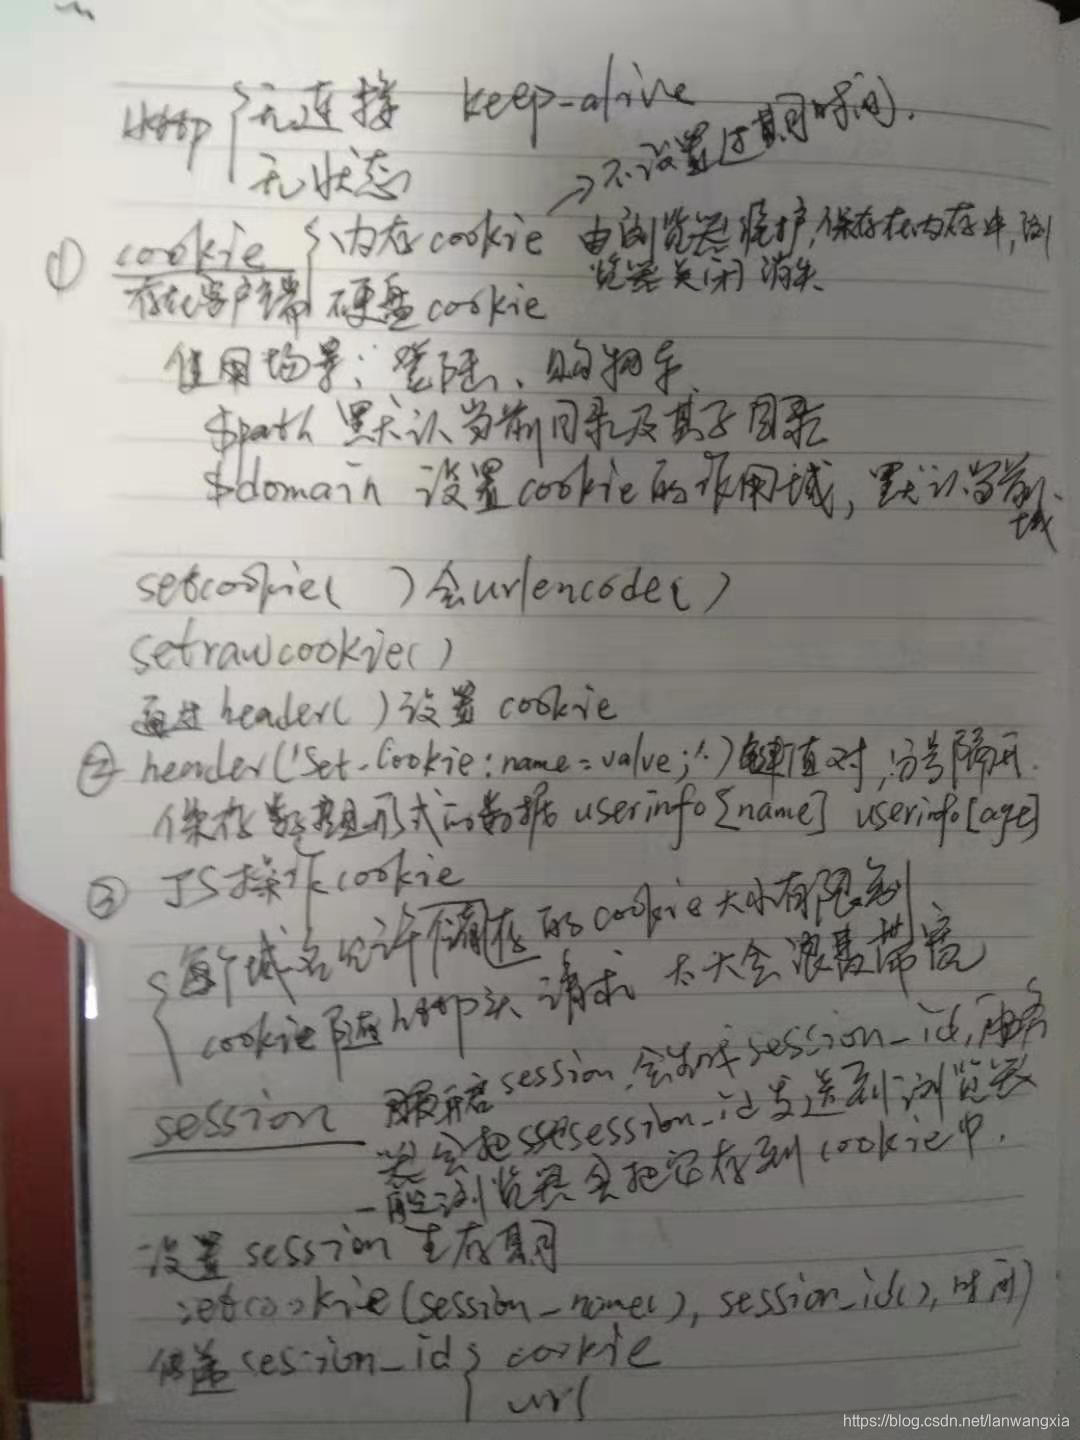 Http { 无连接 keep-alive
无状态
→ 不设置过期时间.
① cookie { 内存cookie 由浏览器维护,保存在内存中,浏
存在客户端 硬盘cookie 览器关闭消失
使用场景: 登陆、购物车
$path 默认当前目录及其子目录
$domain 设置cookie的作用域, 默认当前
域
setcookie( ) 会urlencode()
setrawcookie()
通过header( )设置 cookie
② header('Set-Cookie:name=value;') 键值对,分号隔开.
保存数组形式的数据 userinfo[name] userinfo[age]
③ JS操作cookie
{ 每个域名允许 的cookie大小有限制
cookie随http头 请求 太大会浪费带宽
session 服 启session,会 session_id,服务
器会把 session_id发送到浏览器
一般浏览器会把它存到cookie中.
设置 session 生存期
setcookie(session_name(), session_id(), 时间)
传递 session_id { cookie
url
https://blog.csdn.net/lanwangxia